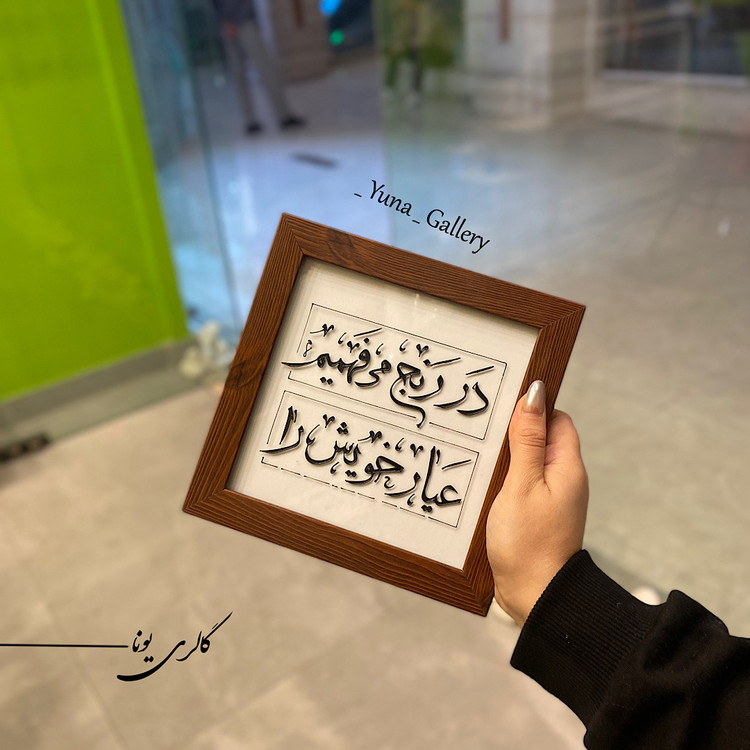 _ Yuna _ Gallery
در رنج می فهمیم
عیار خویش را
گالری یونا